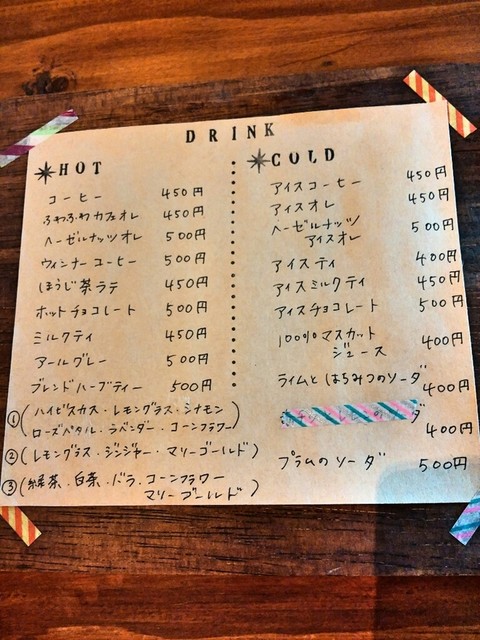 DRINK
HOT
コーヒー 450円
ふわふわカフェオレ 450円
ヘーゼルナッツオレ 500円
ウィンナーコーヒー 500円
ほうじ茶ラテ 450円
ホットチョコレート 500円
ミルクティ 450円
アールグレー 500円
ブレンドハーブティー 500円
①(ハイビスカス・レモングラス・シナモン
ローズペタル・ラベンダー・コーンフラワー)
②(レモングラス・ジンジャー・マリーゴールド)
③(緑茶・白茶・バラ・コーンフラワー
マリーゴールド)
COLD
アイスコーヒー 450円
アイスオレ 450円
ヘーゼルナッツ 500円
アイスオレ
アイスティ 400円
アイスミルクティ 450円
アイスチョコレート 500円
100%マスカット 400円
ジュース
ライムとはちみつのソーダ 400円
ダ
400円
プラムのソーダ 500円